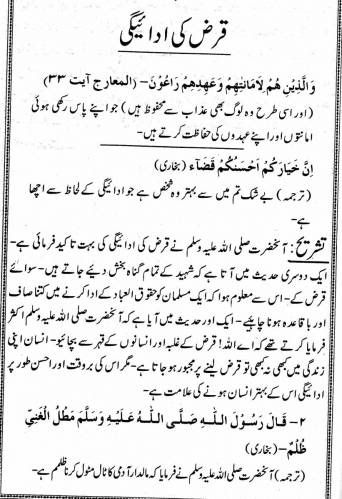 قرض کی ادائیگی
وَالَّذِیْنَ هُمْ لِاَمَانٰتِهِمْ وَعَهْدِهِمْ رَاعُوْنَ۔ (المعارج آیت ۳۳)
(اور اسی طرح وہ لوگ بھی عذاب سے محفوظ ہیں) جو اپنے پاس رکھی ہوئی
امانتوں اور اپنے عہدوں کی حفاظت کرتے ہیں۔
اِنَّ خِیَارَکُمْ اَحْسَنُکُمْ قَضَآءً (بخاری)
(ترجمہ) بے شک تم میں سے بہتر وہ شخص ہے جو ادائیگی کے لحاظ سے اچھا
ہے۔
تشریح: آنحضرت صلی اللہ علیہ وسلم نے قرض کی ادائیگی کی بہت تاکید فرمائی ہے۔
ایک دوسری حدیث میں آتا ہے کہ شہید کے تمام گناہ بخش دیئے جاتے ہیں۔ سوائے
قرض کے۔ اس سے معلوم ہوا کہ ایک مسلمان کو حقوق العباد کے ادا کرنے میں کتنا صاف
اور با قاعدہ ہونا چاہیے۔ ایک اور حدیث میں آیا ہے کہ آنحضرت صلی اللہ علیہ وسلم اکثر
فرمایا کرتے تھے کہ اے اللہ! قرض کے غلبہ اور انسانوں کے قہر سے بچائیو۔ انسان اپنی
زندگی میں کبھی نہ کبھی تو قرض لینے پر مجبور ہو جاتا ہے۔ مگر اس کی بروقت اور احسن طور پر
ادائیگی اس کے بہتر انسان ہونے کی علامت ہے۔
۲۔ قَالَ رَسُوْلُ اللّٰهِ صَلَّی اللّٰهُ عَلَیْهِ وَسَلَّمَ مَطْلُ الْغَنِیِّ
ظُلْمٌ۔ (بخاری)
(ترجمہ) آنحضرت صلی اللہ علیہ وسلم نے فرمایا کہ مالدار آدمی کا ٹال مٹول کرنا ظلم ہے۔